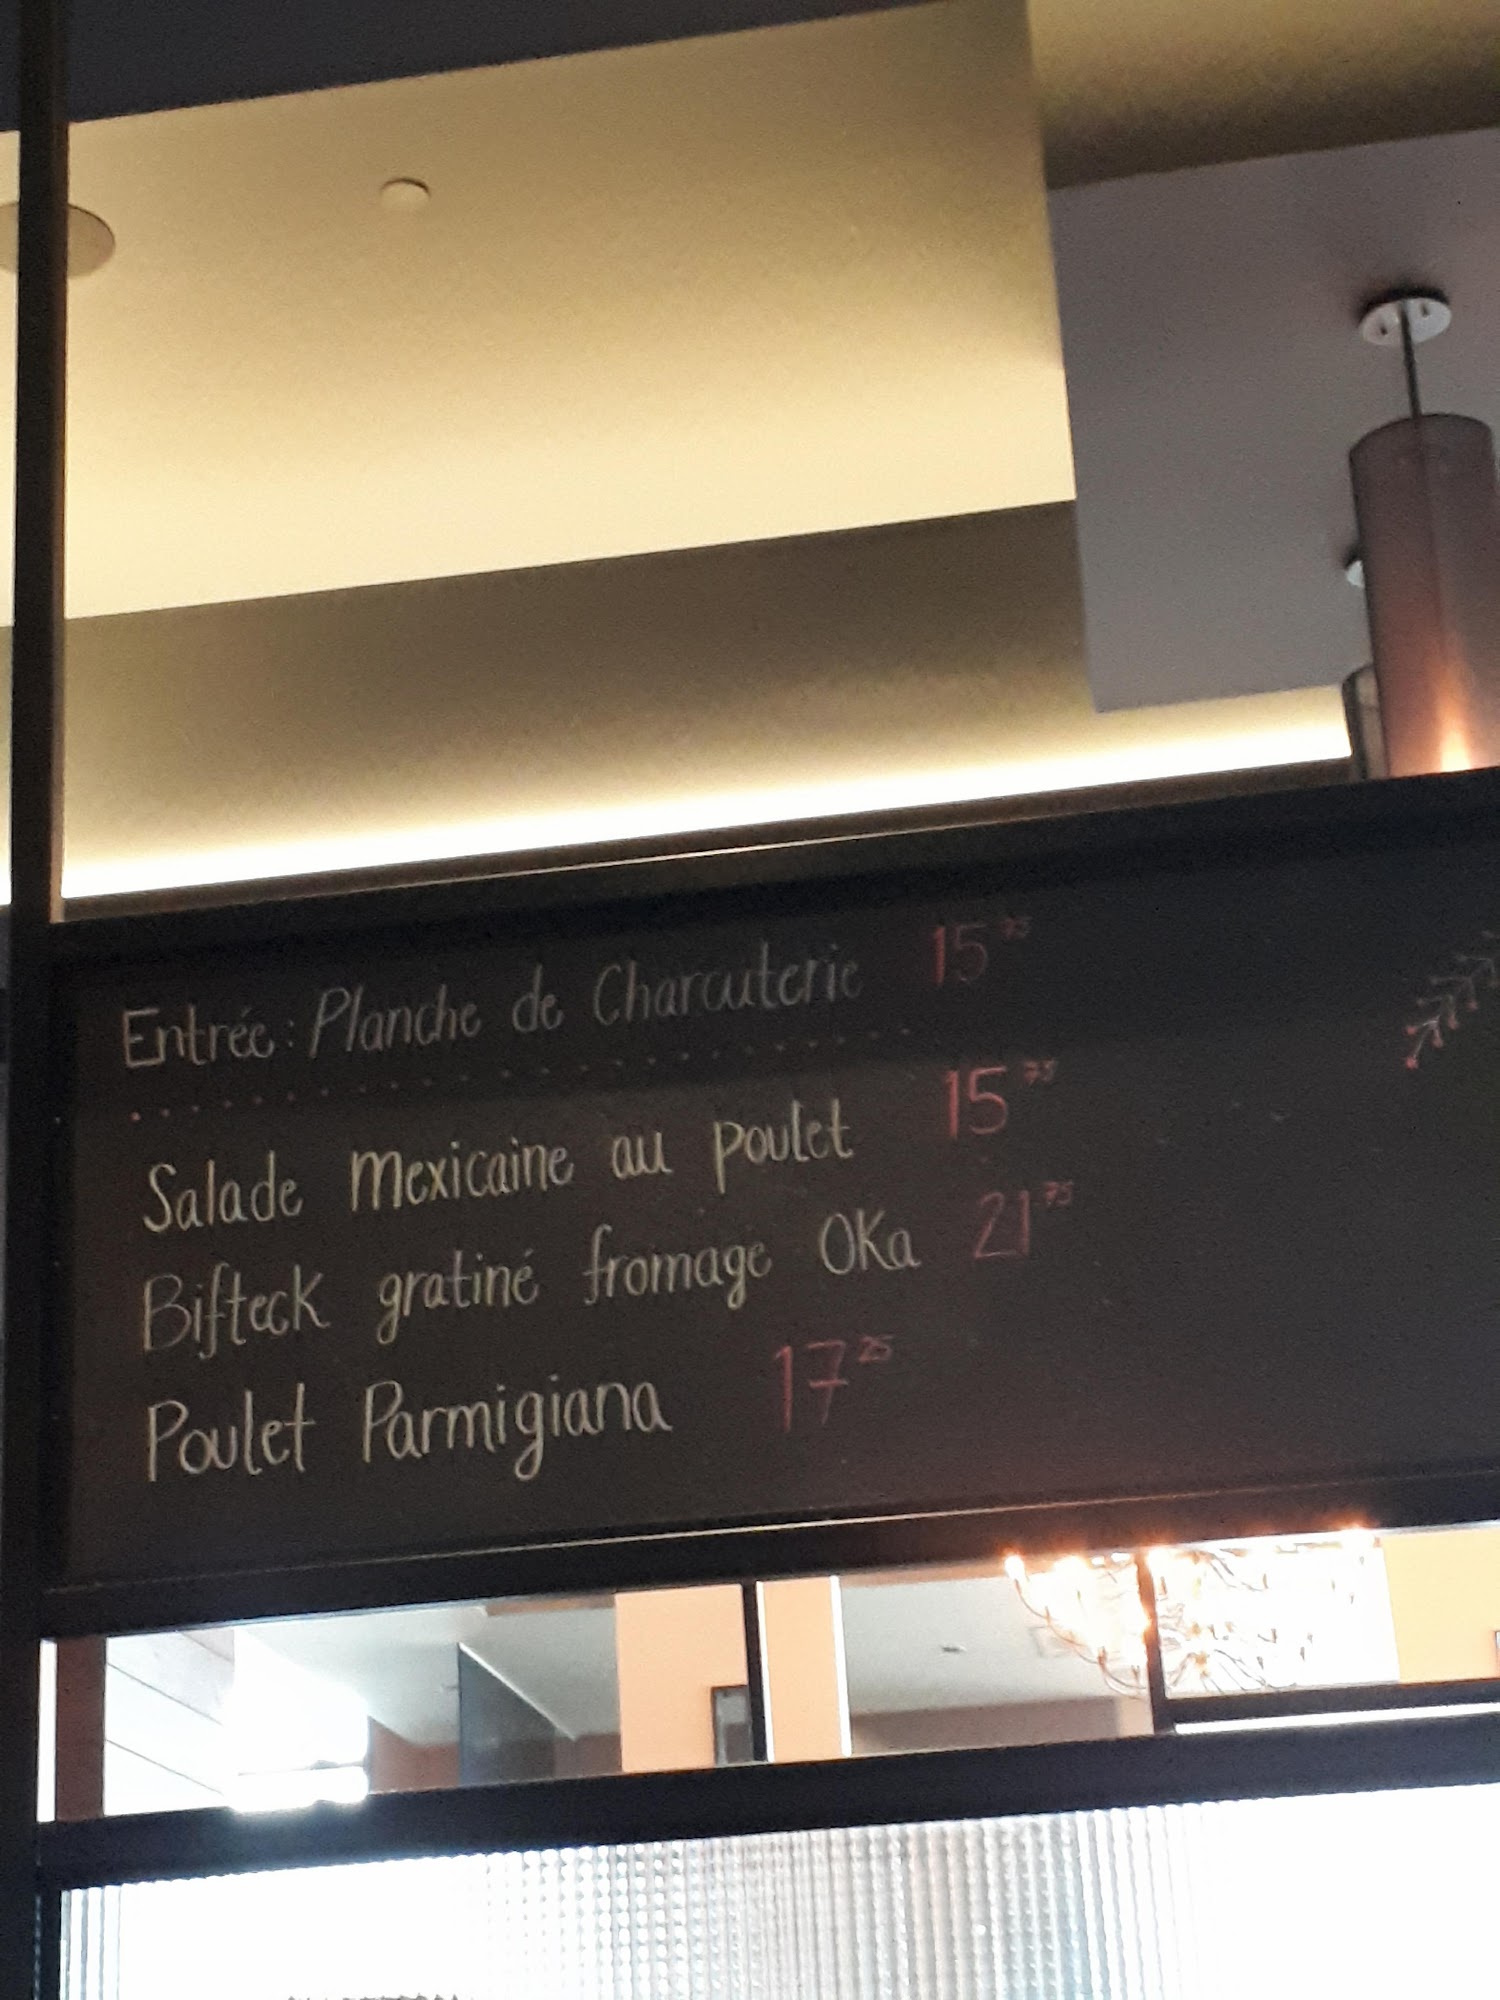 Entrée: Planche de Charcuterie 15 75
Salade mexicaine au poulet 15 75
Bifteck gratiné fromage OKa 21 75
Poulet Parmigiana 17 25